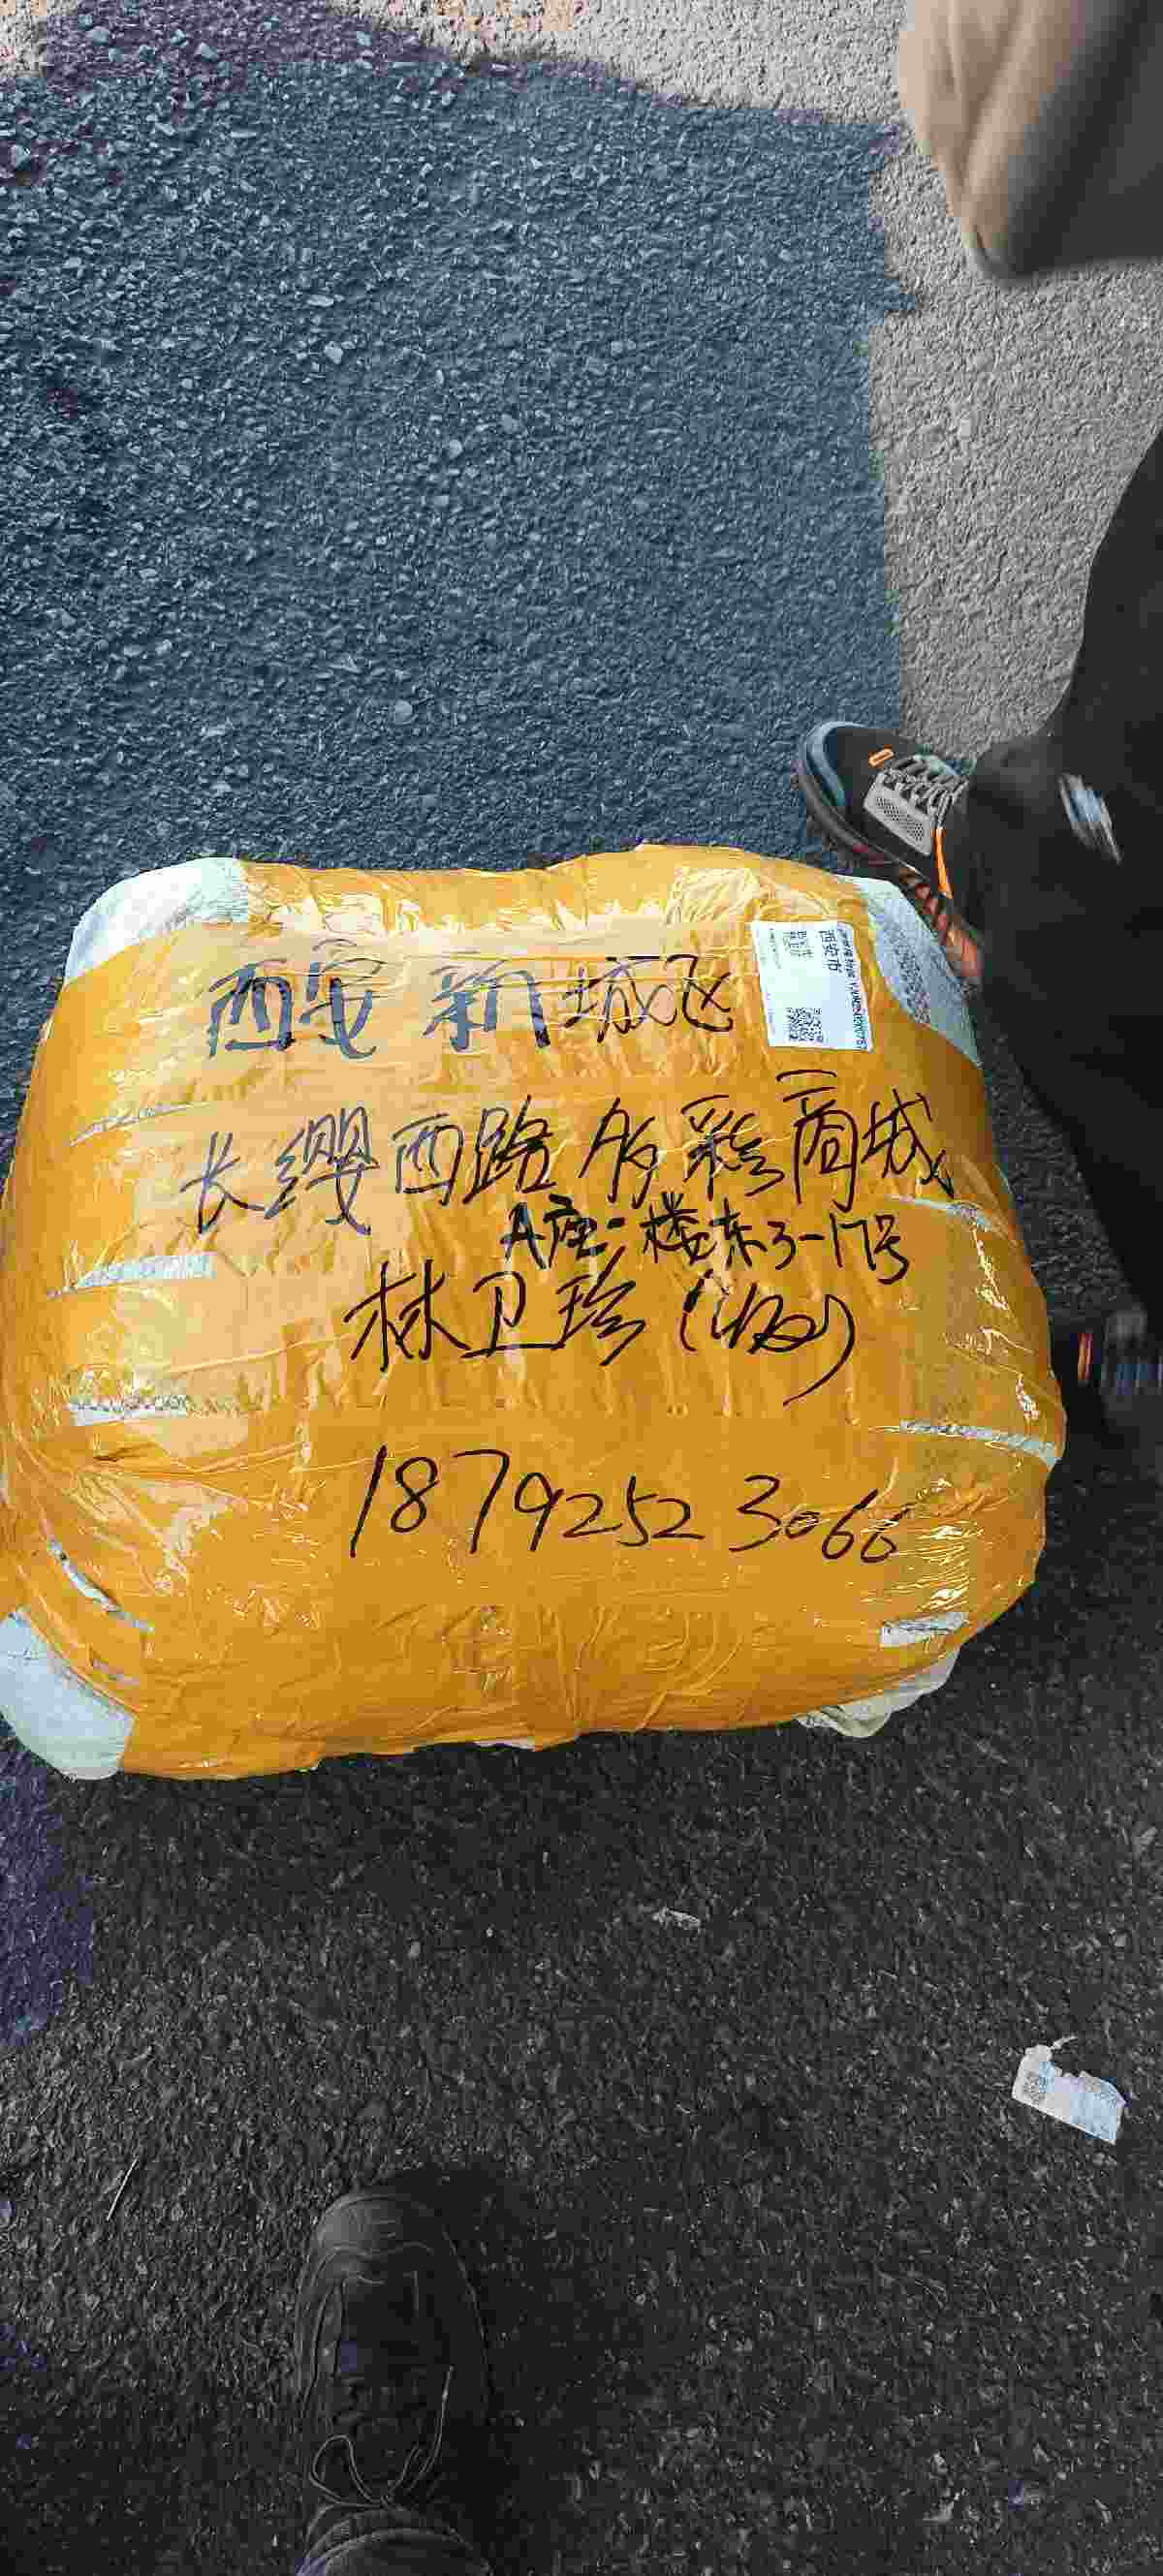 西安 新城区
长缨西路 多彩商城
A座一楼东3-17号
林卫珍(收)
18792523066
西安市